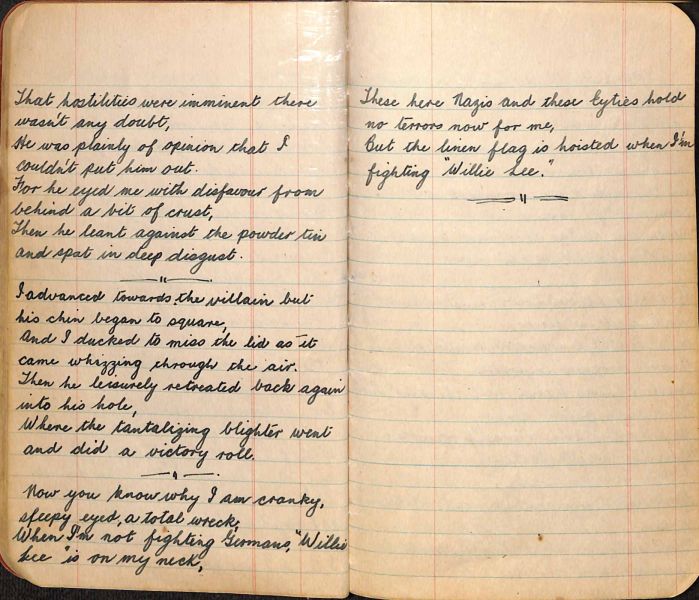 That hostilities were imminent there
wasn't any doubt,
He was plainly of opinion that I
couldn't put him out.
For he eyed me with disfavour from
behind a bit of crust,
Then he leant against the powder tin
and spat in deep disgust.
I advanced towards the villain but
his chin began to square,
And I ducked to miss the lid as it
came whizzing through the air.
Then he leisurely retreated back again
into his hole,
Where the tantalizing blighter went
and did a victory roll.
Now you know why I am cranky,
sleepy eyed, a total wreck,
When I'm not fighting Germans, "Willie
Lee" is on my neck,
These here Nazis and these Eyties hold
no terrors now for me,
But the linen flag is hoisted when I'm
fighting "Willie Lee."